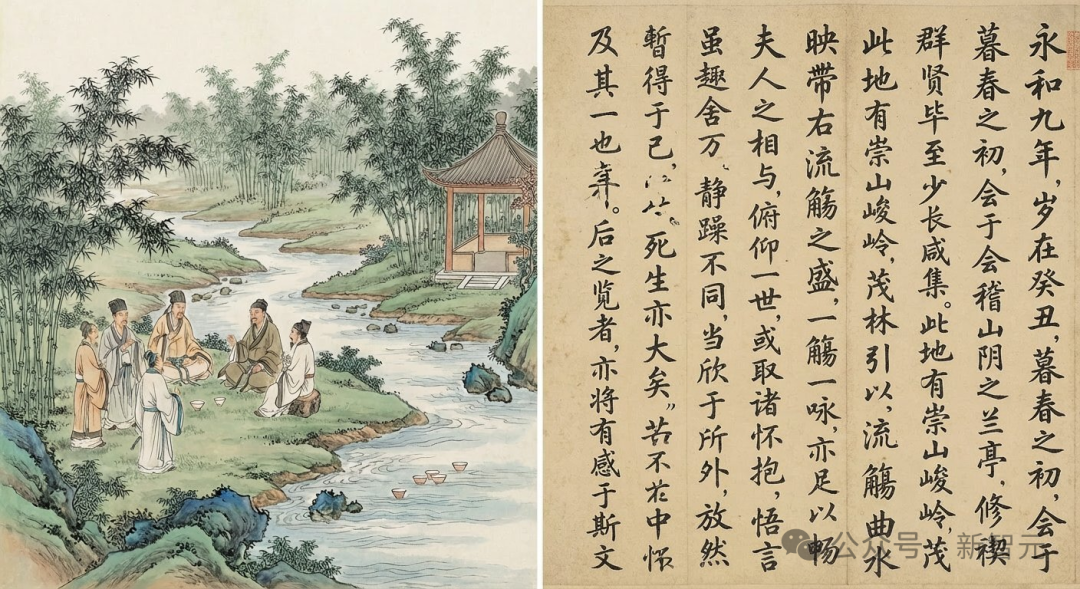 永和九年,岁在癸丑,暮春之初,会于
暮春之初,会于会稽山阴之兰亭,修禊
群贤毕至少长咸集。此地有崇山峻岭,茂
此地有崇山峻岭,茂林引以,流觴曲水
映带右流觴之盛,一觴一咏,亦足以畅
夫人之相与,俯仰一世,或取诸怀抱,悟言
虽趣舍万、静躁不同,当欣于所外,放然
暂得于己,死生亦大矣。苦不在中怀
及其一也。后之览者,亦将有感于斯文
公众号 新智元